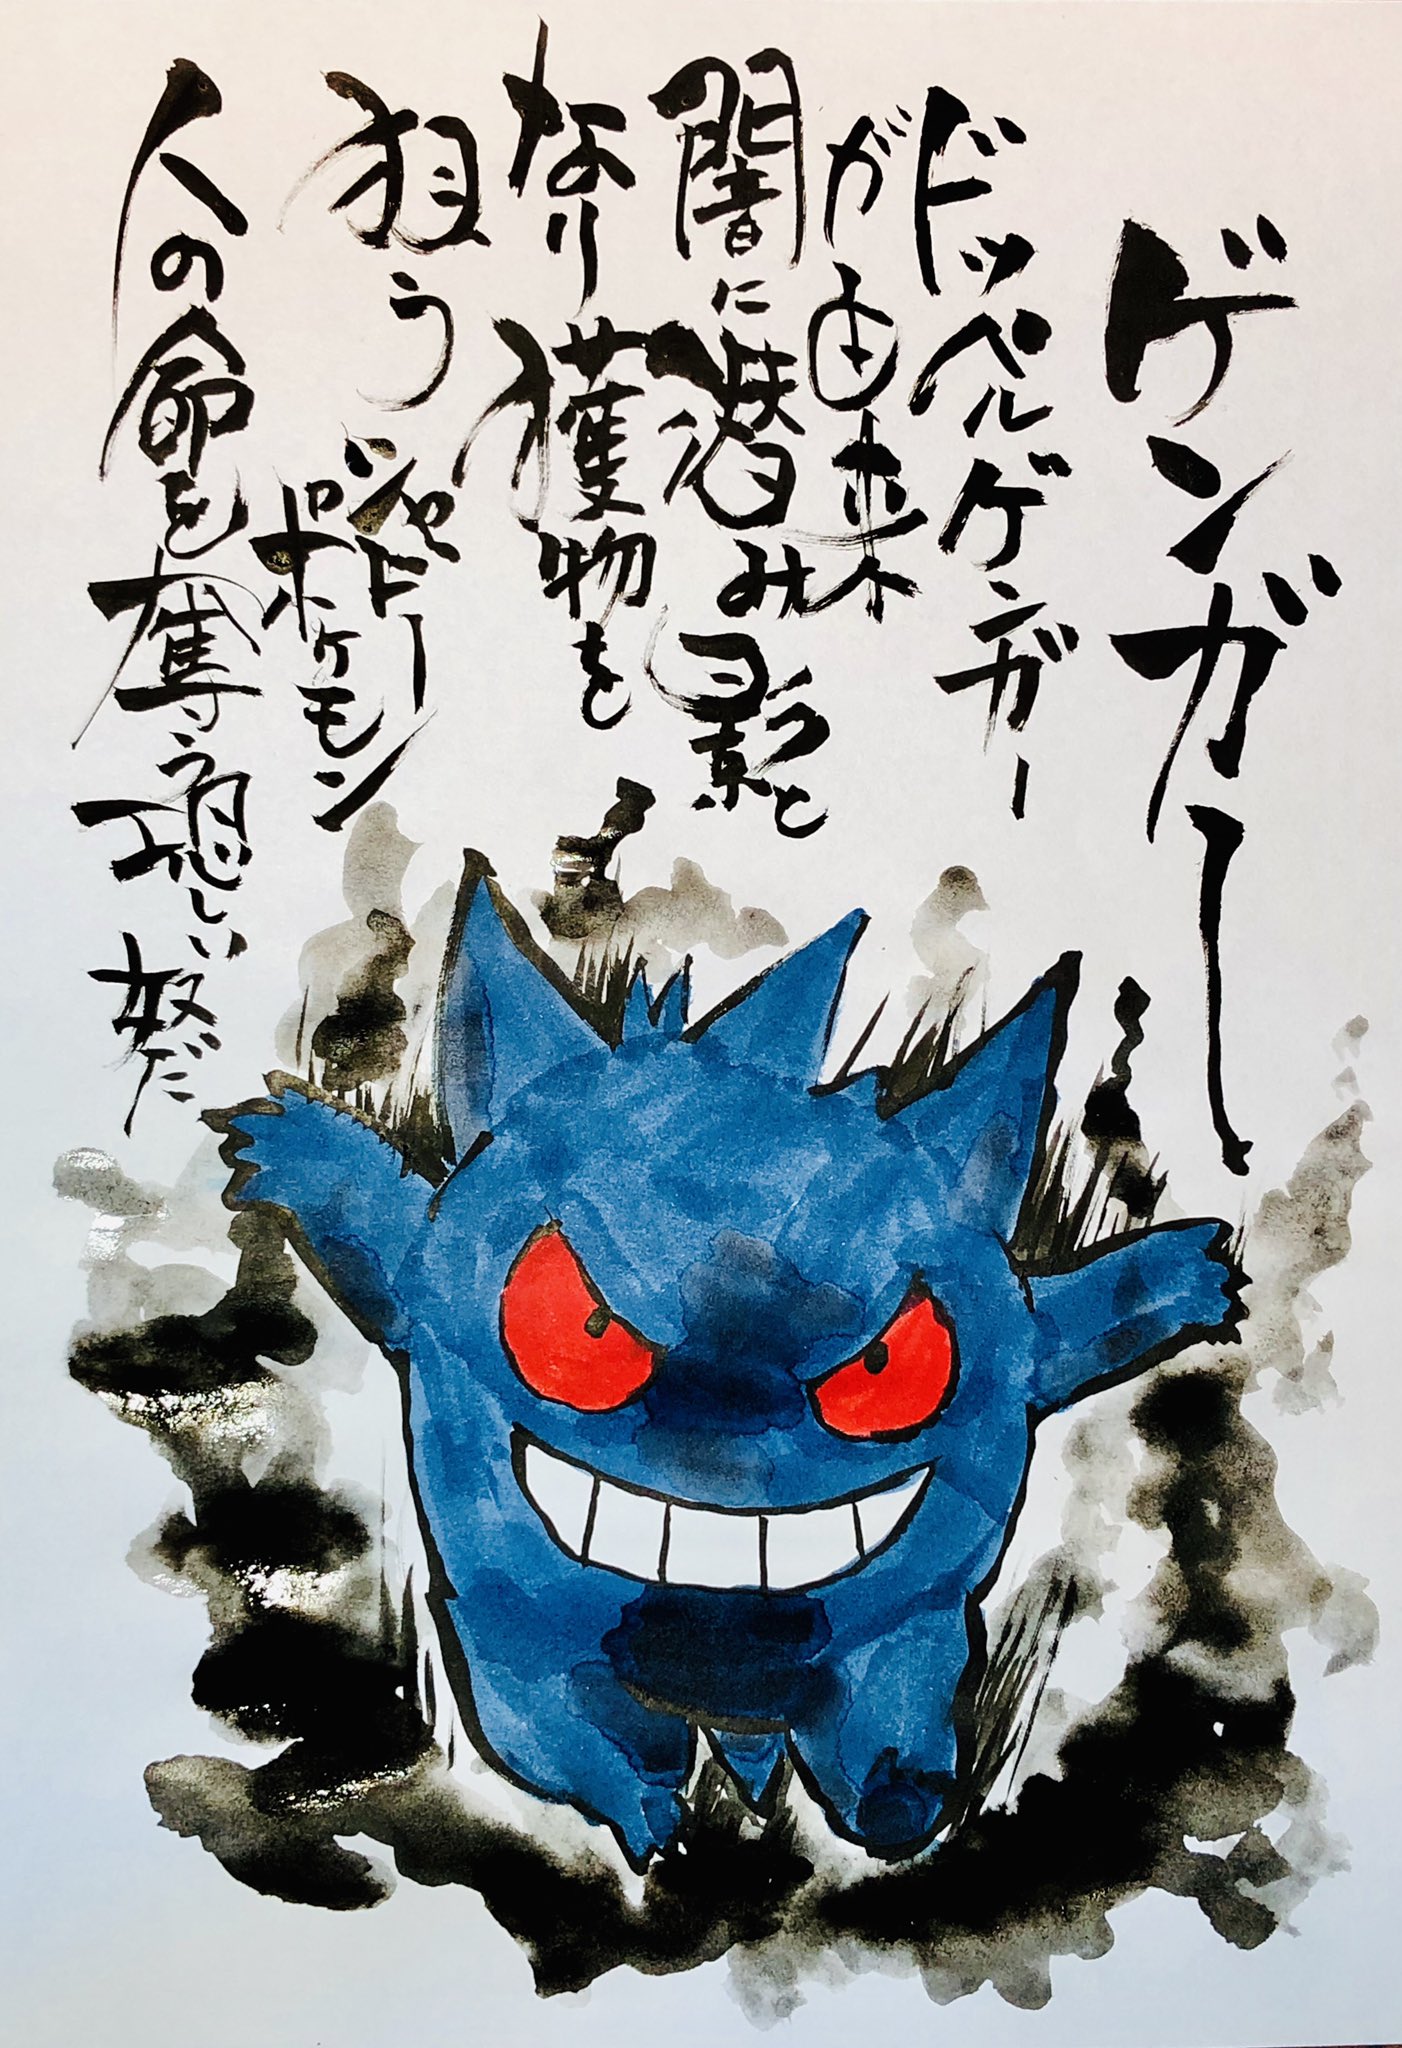 ゲンガー
ドッペルゲンガー
が由来
闇に潜み影と
なり獲物を
狙うシャドー
ポケモン
人の命を奪う恐しい奴だ